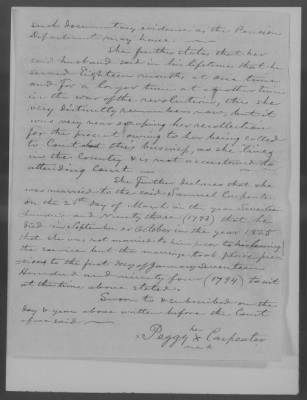 such documentary evidence as the Pension
Department may have
She further states that her
said husband said in his lifetime that he
served Eighteen months at one time
and for a longer time at another time
in the war of the revolution, this she
very distinctly remembers now, but it
was very near escaping her recollection
for the present owing to her being called
to Court on this business, as she lives
in the Country & is not accustomed to
attending Court
She further declares that she
was married to the said Samuel Carpenter
on the 28th day of March in the year Seventeen
hundred and Ninety three (1793) that he
died in September or October in the year 1825
that she was not married to him prior to his leaving
the service but the marriage took place pre
vious to the first day of January Seventeen
Hundred and ninety four (1794) to wit
at the time above stated.
Sworn to & subscribed on the
day & year above written before the Court
aforesaid
Peggy her x mark Carpenter